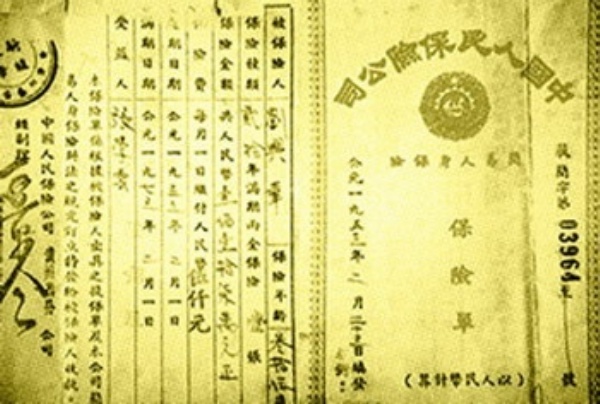 中國人民保險公司
簡易人身保險
保險單
03964
號
公元一九五三年二月二十三日編發
(以人民幣計算)
被保險人 劉興華 保險年齡 叁拾伍
保險種類 貳拾年滿期兩全保險 壹張
保險金額 共人民幣壹佰壹拾柒萬元正
險費 每月一日繳付人民幣伍仟元
日期 公元一九五三年二月一日
滿期日期 公元一九七三年二月一日
受益人 張
本保險單係根據被保險人之投保單及本公司簡
易人身保險辦法之規定訂立特發給被保險人收執。
中國人民保險公司 公司
經副理